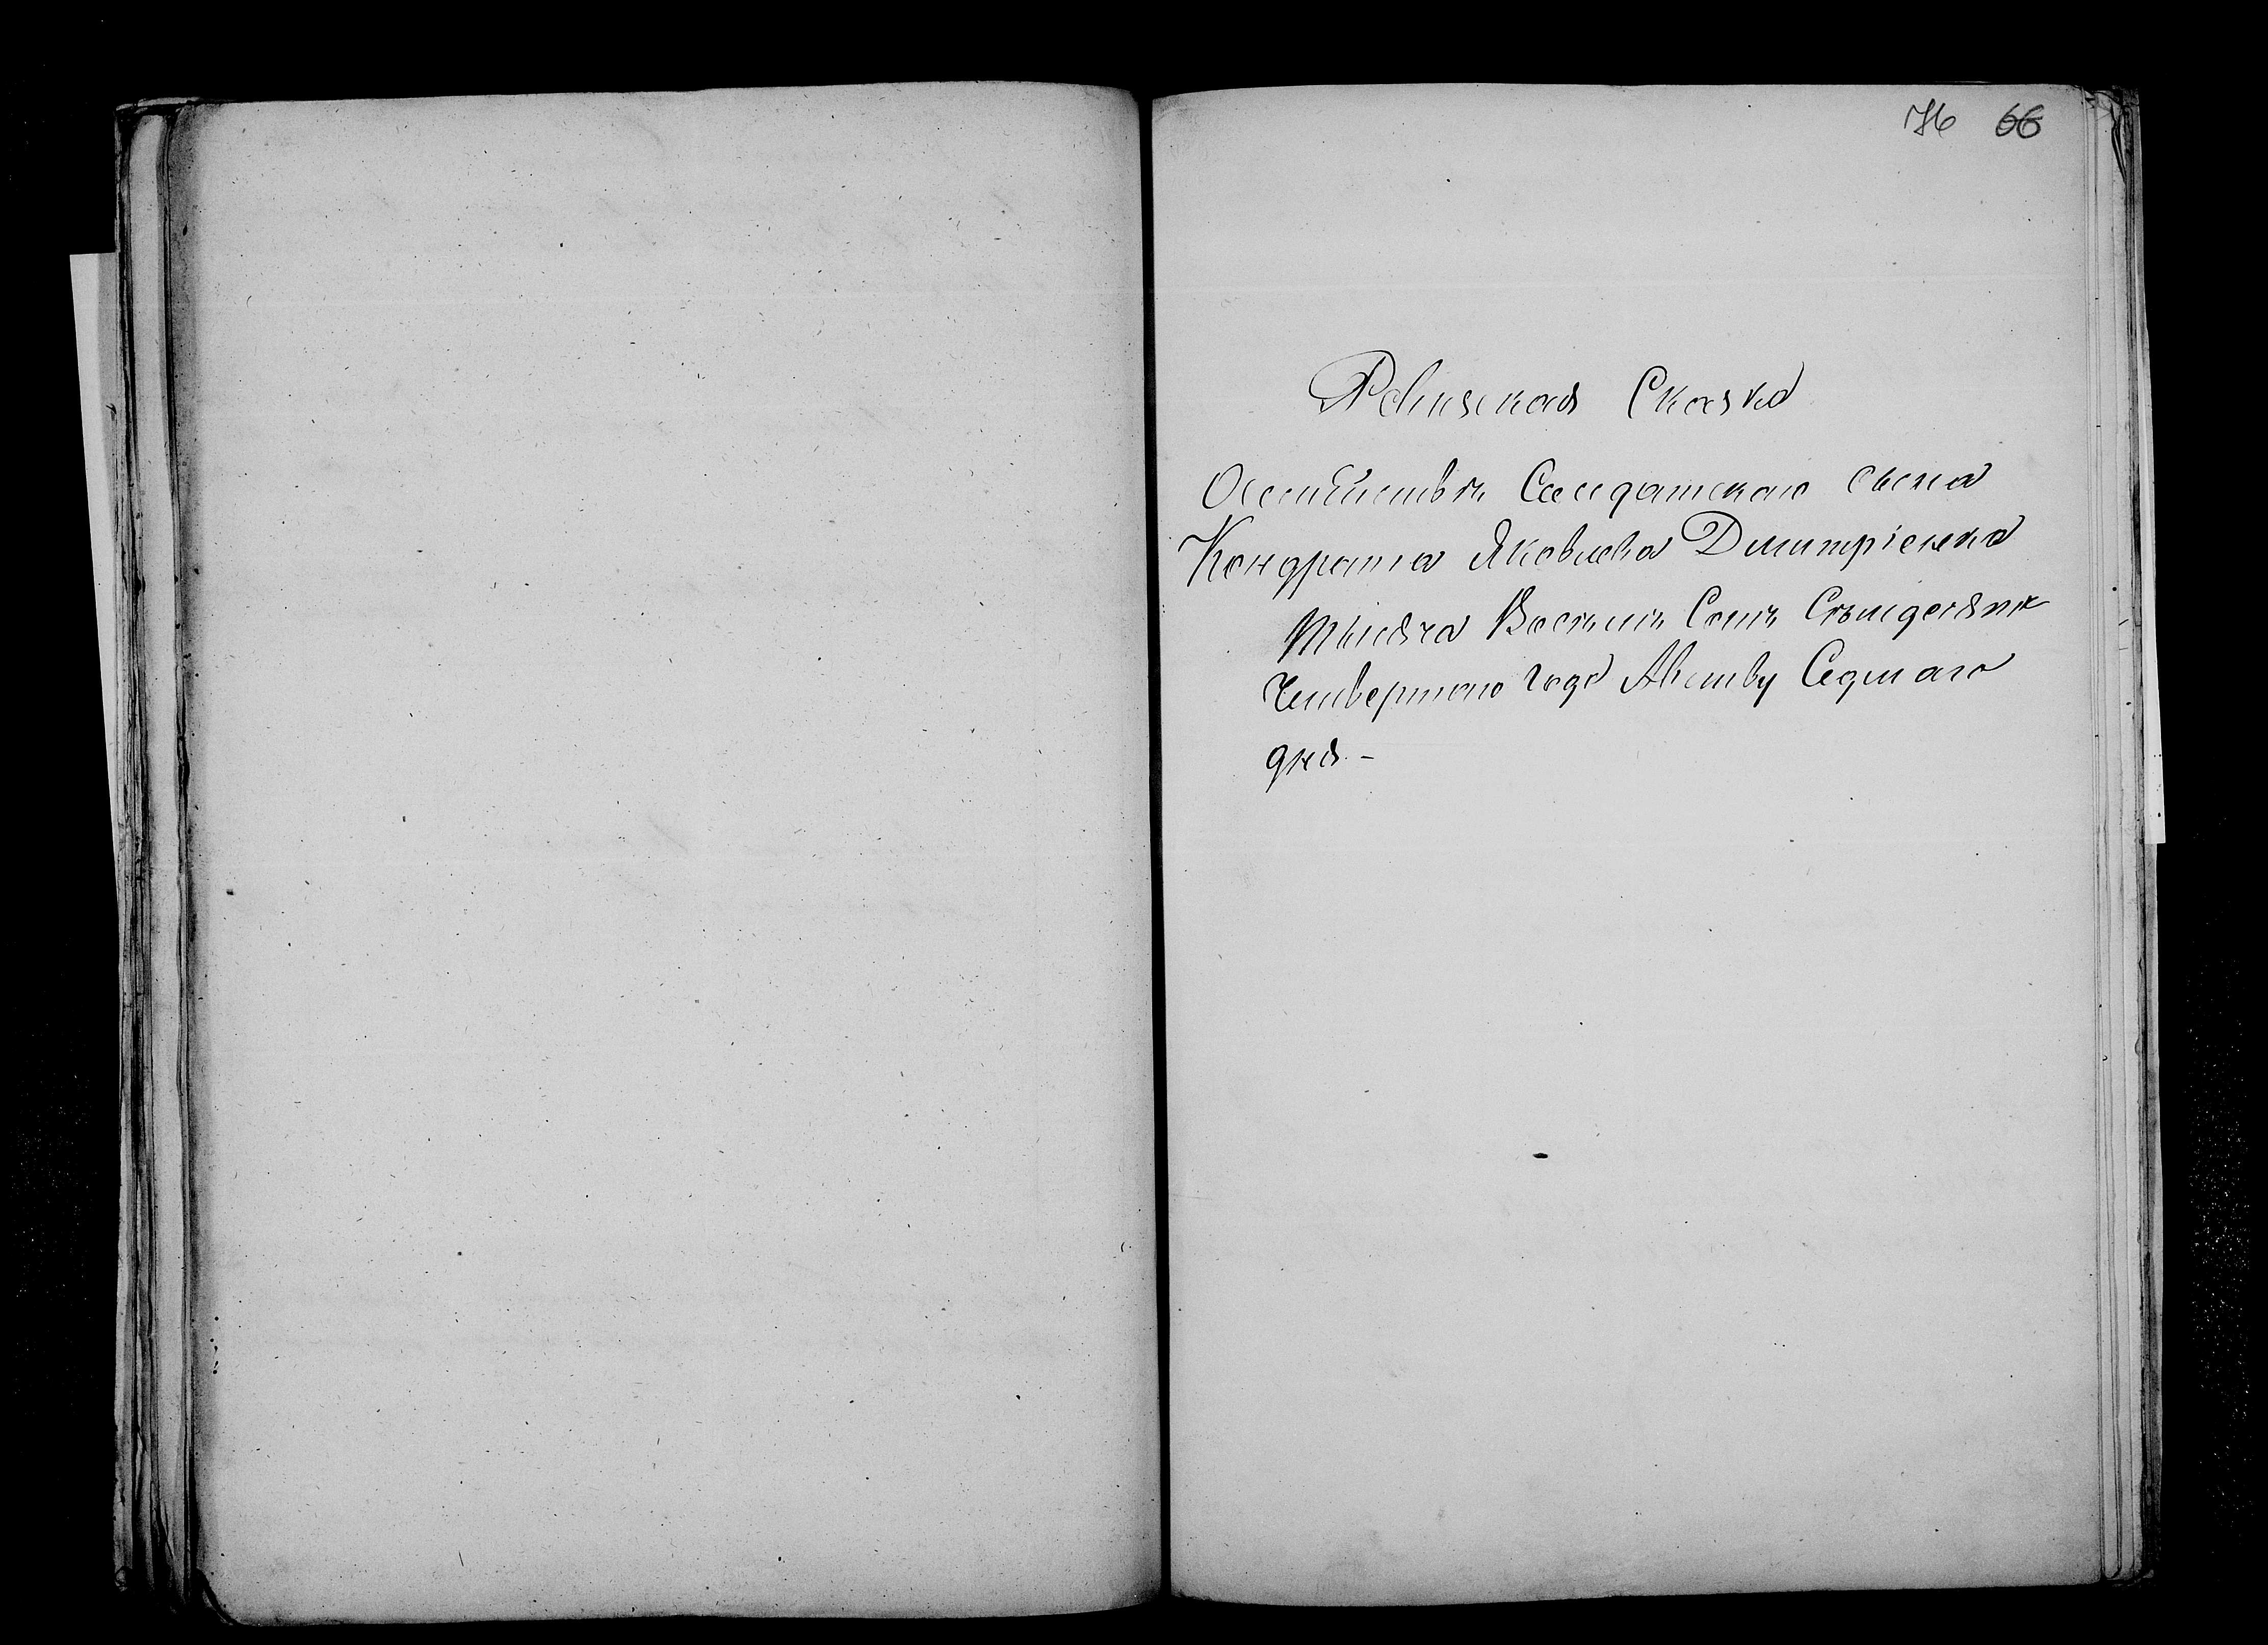 76 66
Ревизская Сказка
О семействѣ Салдатскаго сына
Кондрата Яковлева Димитріенка
Тысяча Восемь Сотъ Семдесятъ
Четвертаго года Августу Седмаго
дня. -